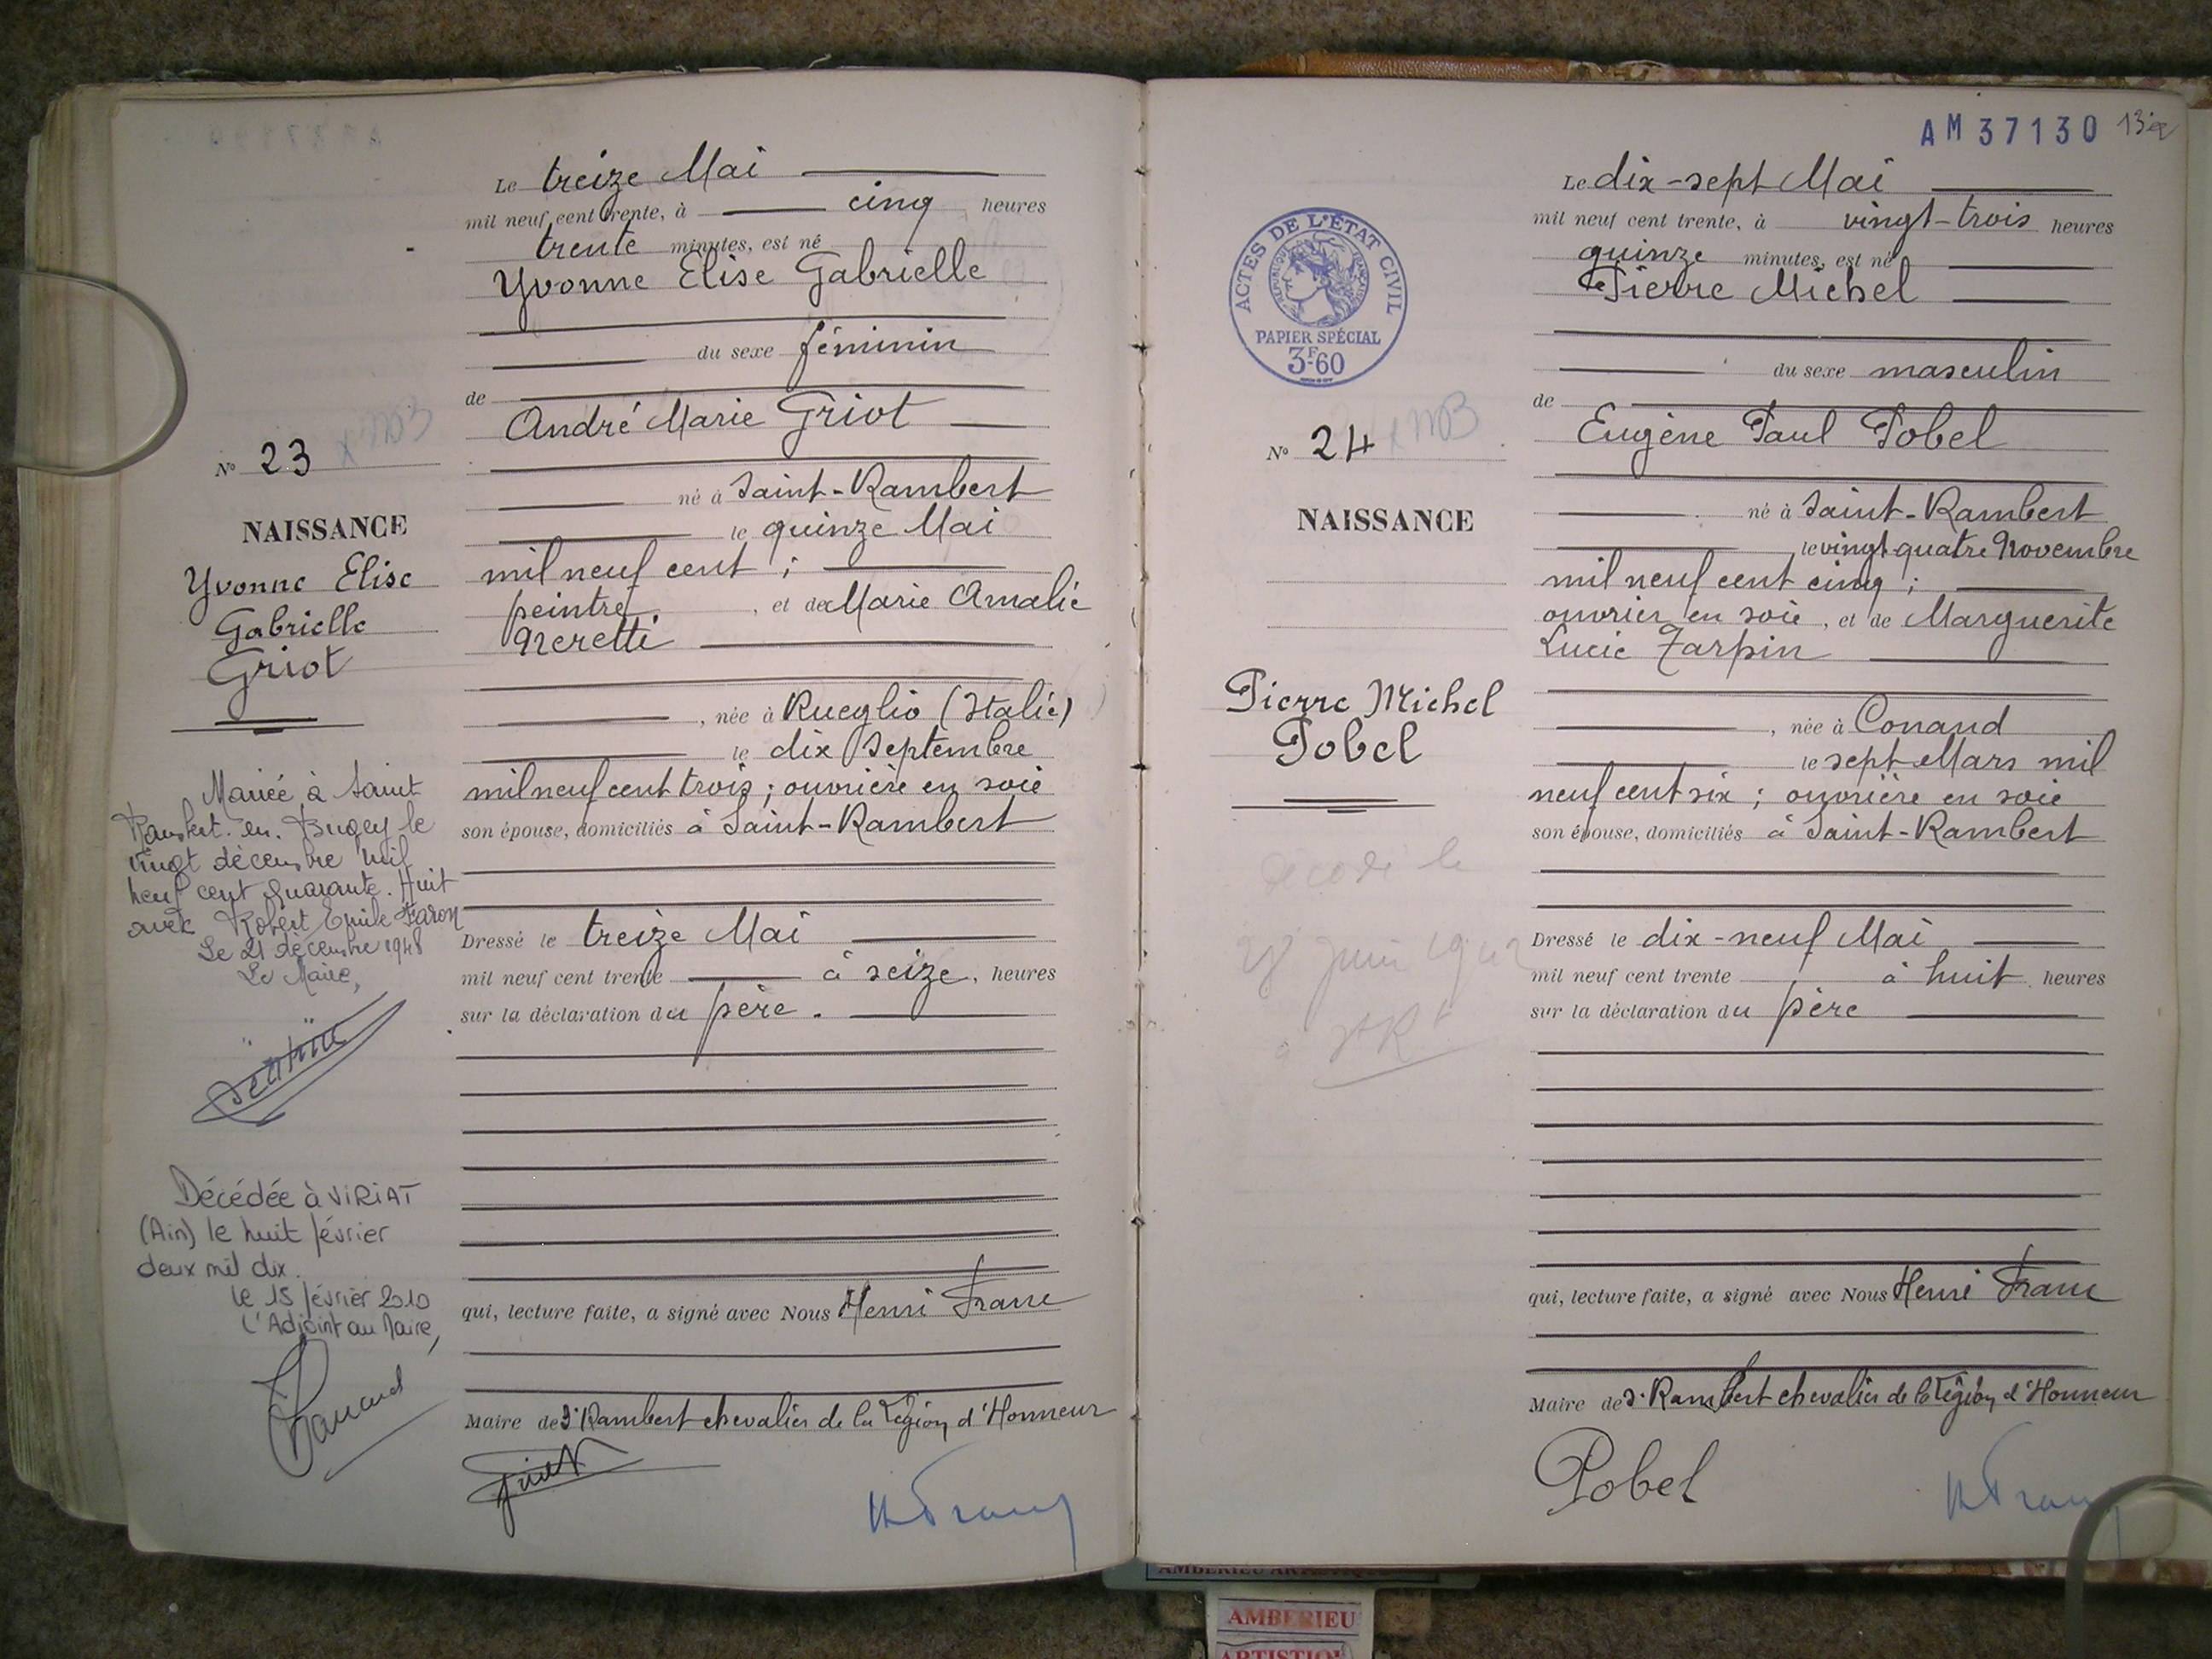 Le treize Mai
mil neuf cent trente, à cinq heures
trente minutes, est né
Yvonne Elise Gabrielle
du sexe féminin
de
André Marie Griot
né à Saint-Rambert
le quinze Mai
mil neuf cent ;
peintre, et de Marie Amalie
Neretti
, née à Rueglio (Italie)
le dix Septembre
mil neuf cent trois ; ouvrière en soie
son épouse, domiciliés à Saint-Rambert
Dressé le treize Mai
mil neuf cent trente à seize, heures
sur la déclaration du père.
qui, lecture faite, a signé avec Nous Henri Franc
Maire de St Rambert chevalier de la Légion d'Honneur
Griot
H Franc
No 23
NAISSANCE
Yvonne Elise
Gabrielle
Griot
Mariée à Saint
Rambert-en-Bugey le
vingt décembre mil
neuf cent quarante-Huit
avec Robert Emile Faron
Le 21 décembre 1948
Le Maire,
Décédée à VIRIAT
(Ain) le huit février
deux mil dix.
le 15 février 2010
L'Adjoint au Maire,
AM37130
ACTES DE L'ÉTAT CIVIL
RÉPUBLIQUE FRANÇAISE
PAPIER SPÉCIAL
3F-60
Le dix-sept Mai
mil neuf cent trente, à vingt-trois heures
quinze minutes, est né
Pierre Michel
du sexe masculin
de
Eugène Paul Pobel
né à Saint-Rambert
le vingt quatre Novembre
mil neuf cent cinq ;
ouvrier en soie, et de Marguerite
Lucie Tarpin
, née à Conand
le sept Mars mil
neuf cent six ; ouvrière en soie
son épouse, domiciliés à Saint-Rambert
Dressé le dix-neuf Mai
mil neuf cent trente à huit heures
sur la déclaration du père
qui, lecture faite, a signé avec Nous Henri Franc
Maire de St Rambert chevalier de la Légion d'Honneur
Pobel
H Franc
No 24
NAISSANCE
Pierre Michel
Pobel
décédé le
juin
à St Rt
AMBERIEU